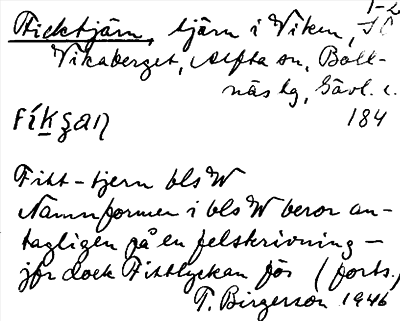 Ficktjärn, tjärn i Viken, SO 1-2
Vikaberget, Alfta sn, Boll-
näs tg, Gävl. l.
184
Fitt-tjern bls W
Namnformen i bls W beror an-
tagligen på en felskrivning –
jfr dock Fittlyckan fös (forts.)
T. Birgerson 1946